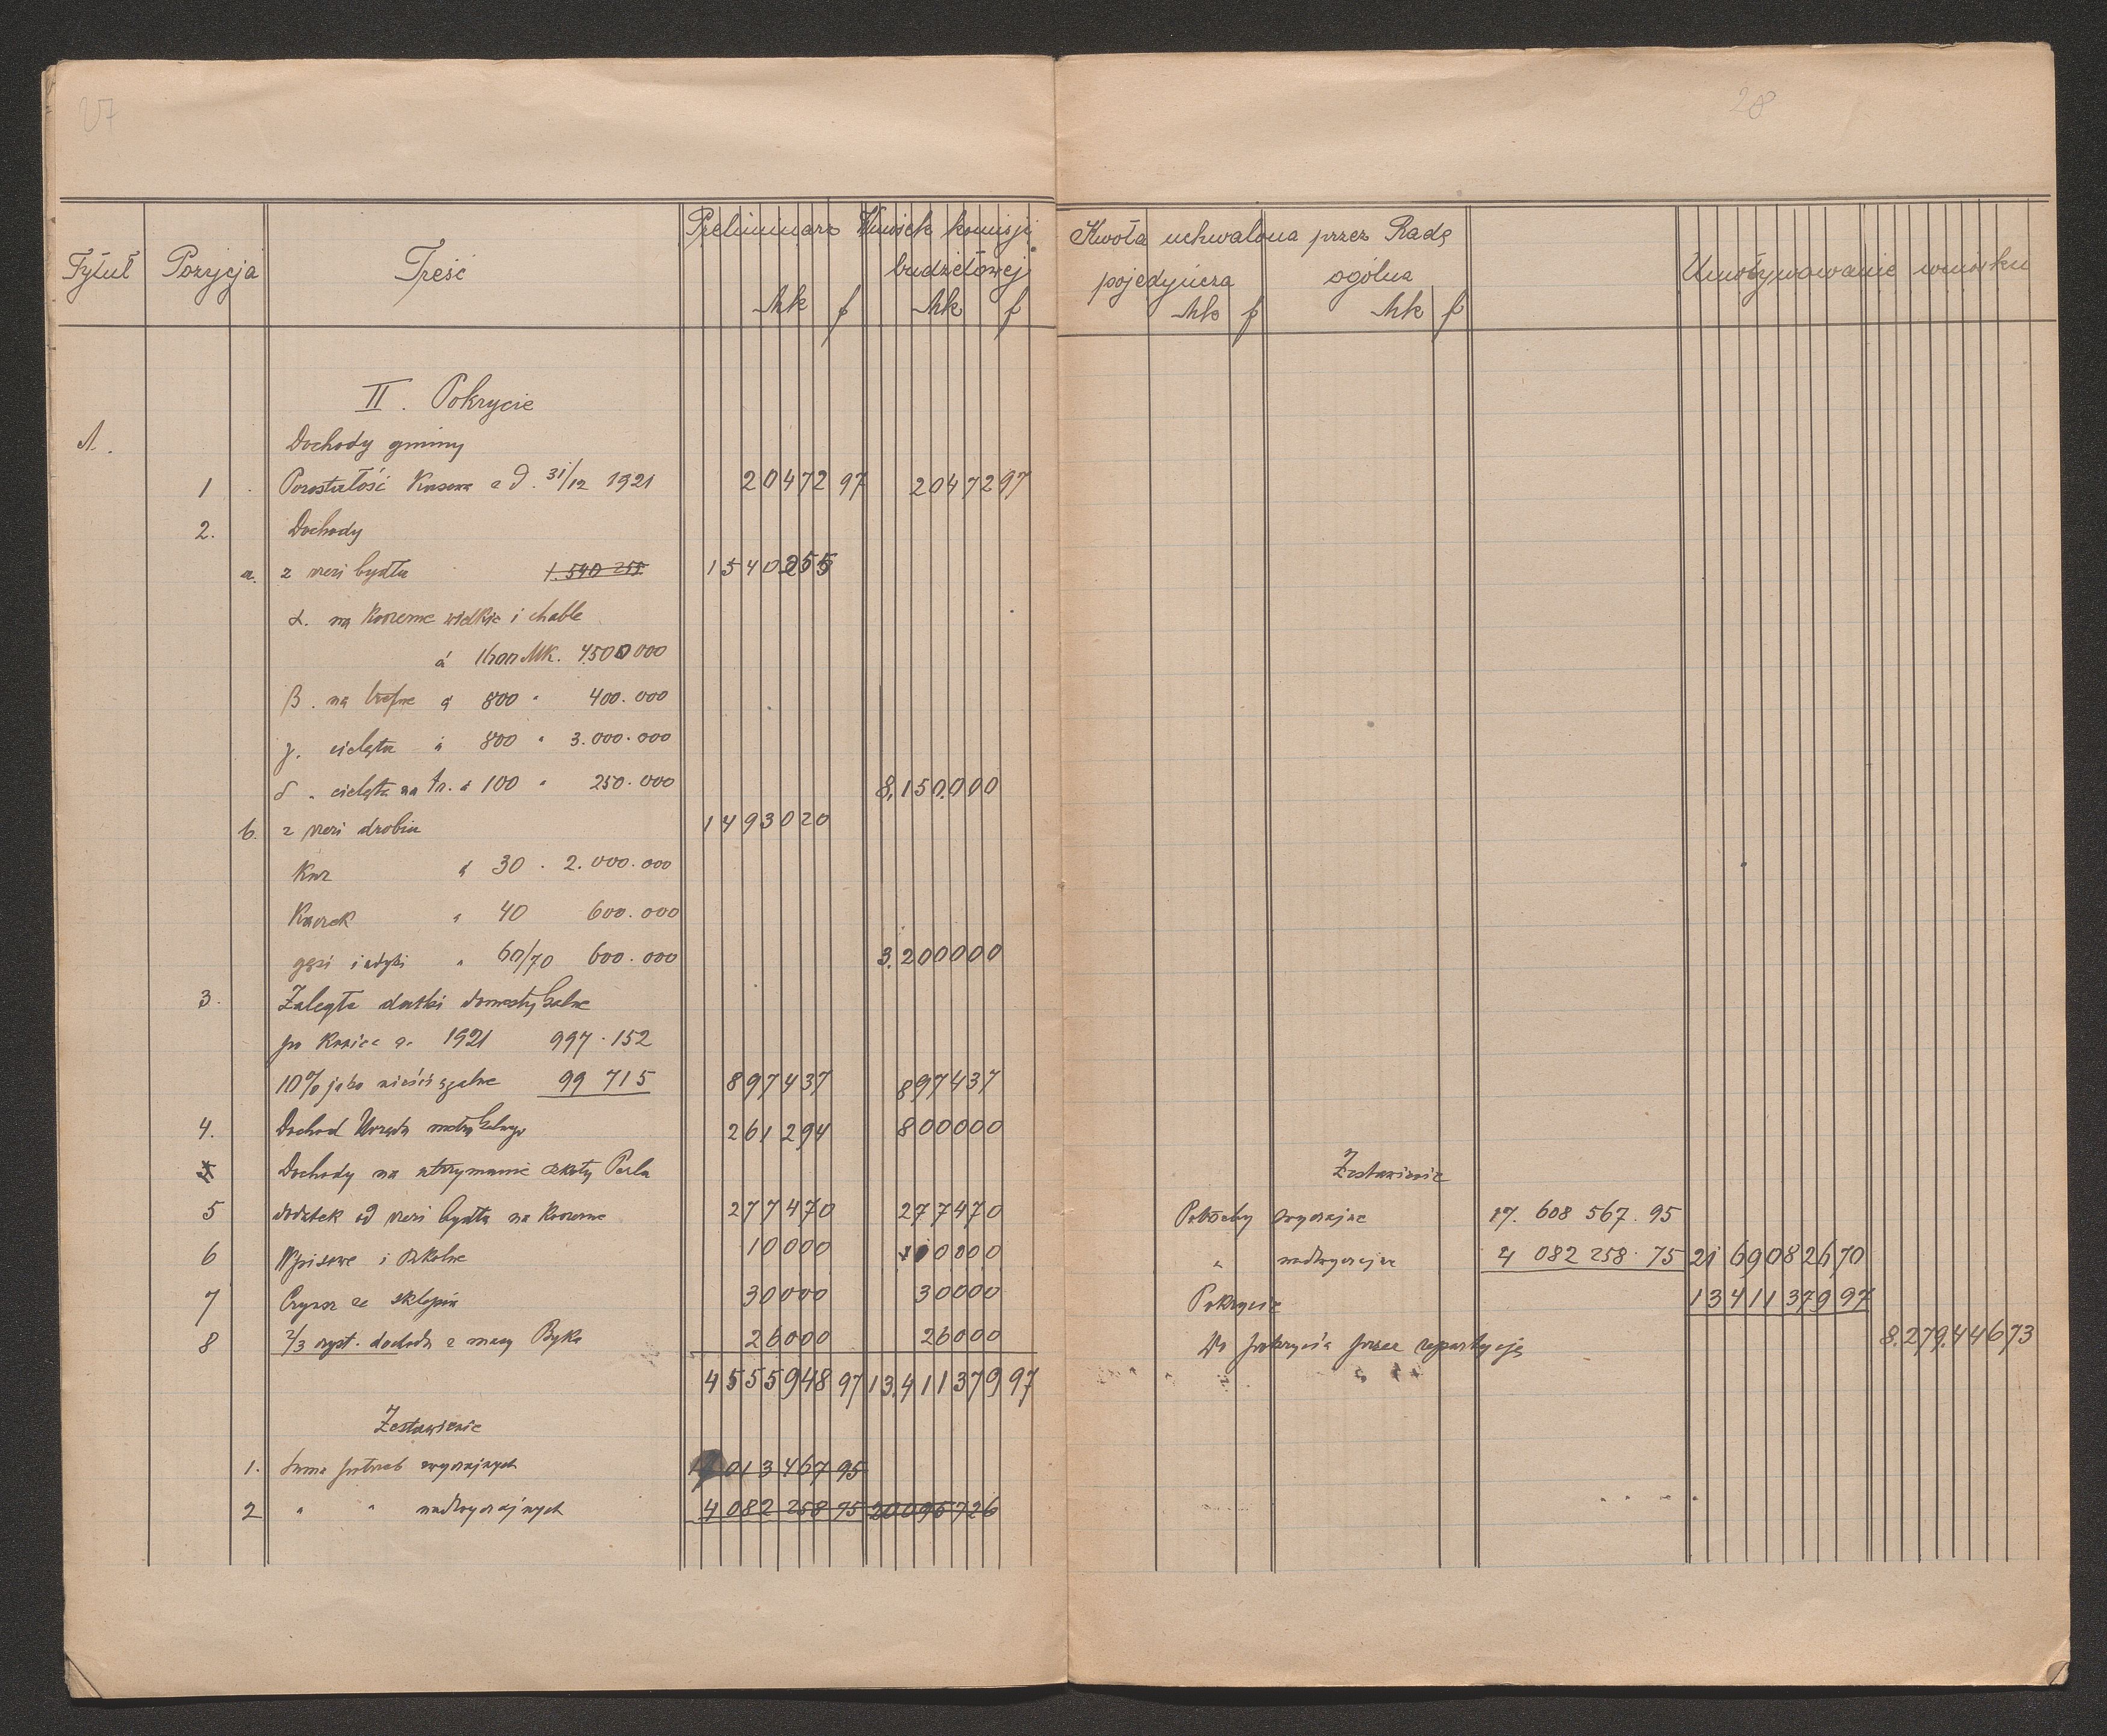 27
28
Tytuł Pozycja Treść Preliminarz Wniosek komisji budżetowej
Mk f Mk f
Kwota uchwalona przez Radę
pojedyńcza ogólna Umotywowanie wniosku
Mk f Mk f
II. Pokrycie
A. Dochody gminy
1 Pozostałość Kasowa z d. 31/12 1921 20472 97 20472 97
2. Dochody
a. z rzezi bydła 1.540 255 1540255
α. na koszerne wielkie i chable
á Mk. 4.500 000
β. na trefne á 800 " 400.000
γ. cielęta á 800 " 3.000.000
δ. cielęta na tr. á 100 " 250.000 8,150,000
b. z rzezi drobiu 1493020
Kur á 30 . 2.000.000
Kaczek " 40 600.000
gęsi i indyki " 60/70 600.000 3.200000
3. Zaległe datki domestykalne
po koniec r. 1921 997.152
10% jako nieściągalne 99 715 897437 897437
4. Dochod Urzędu metrykalnego 261294 800000
Dochody na utrzymanie szkoły Perla
5 dodatek od rzezi bydła na koszerne 277470 277470
6 Wpisowe i szkolne 10000 10000
7 Czynsz ze sklepów 30000 30000
8 2/3 czyst. dochodu z masy Byka 26000 26000
4555948 97 13,411379 97
Zestawienie
1. Suma potrzeb zwyczajnych 013467 95
2 " " nadzwyczajnych 4 082 258 75 20095726
Zestawienie
Potrzeby zwyczajne 17. 608 567. 95
" nadzwyczajne 4 082 258. 75 21 690826 70
Pokrycie 13411379 97
Do pokrycia przez repartycję 8.279.446 73